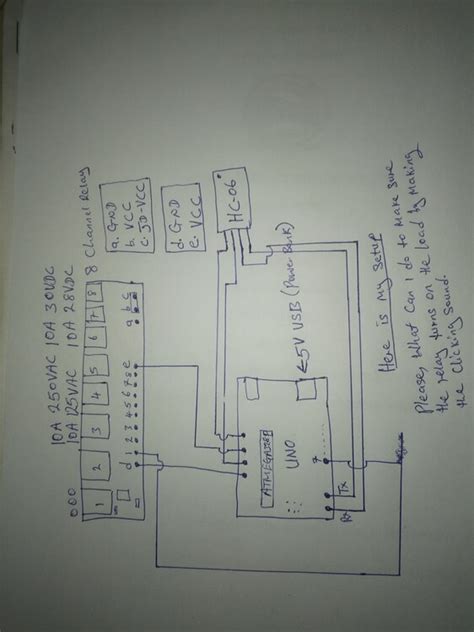 10A 250VAC 10A 30VDC
10A 125VAC 10A 28VDC
8 Channel Relay
1 2 3 4 5 6 7 8
d 1 2 3 4 5 6 7 8 e
a b c
a. GND
b. VCC
c. JD-VCC
d. GND
e. VCC
HC-06
5V USB (Power Bank)
ATMEGA328P
UNO
7
Tx
Rx
Here is My Setup
Please, What Can I do to Make sure
the relay turns on the load by Making
the clicking sound.